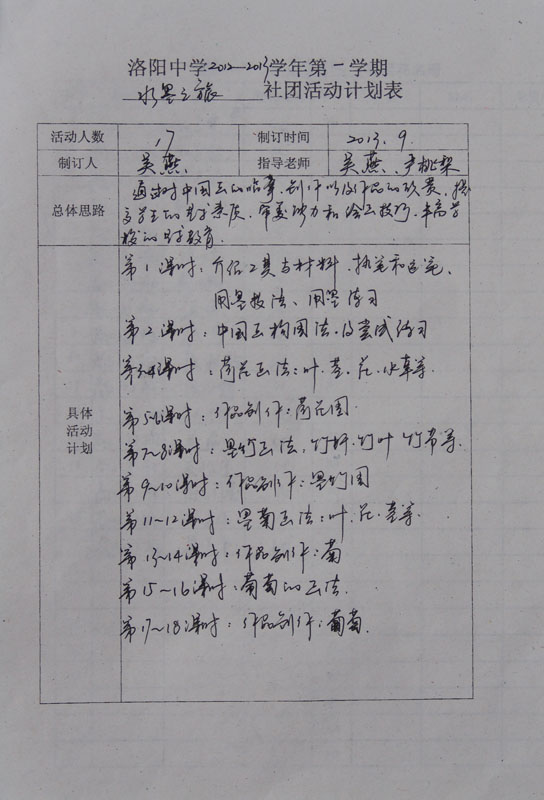 洛阳中学2012—2013学年第一学期
水墨之旅 社团活动计划表
活动人数 17 制订时间 2013.9
制订人 吴燕 指导老师 吴燕、
总体思路 通过对中国画的临摹、创作以及作品的欣赏,提
高学生的艺术素质、审美能力和绘画技巧,丰富学
校的艺术教育.
具体
活动
计划
第1课时:介绍工具与材料、执笔和运笔、
用墨技法、用墨练习
第2课时:中国画构图法及尝试练习
第3~4课时:荷花画法:叶、茎、花、水草等.
第5~6课时:作品创作:荷花图.
第7~8课时:墨竹画法,竹杆、竹叶 竹节等.
第9~10课时:作品创作:墨竹图
第11~12课时:墨菊画法:叶、花、茎等.
第13~14课时:作品创作:菊
第15~16课时:葡萄的画法
第17~18课时:作品创作:葡萄.